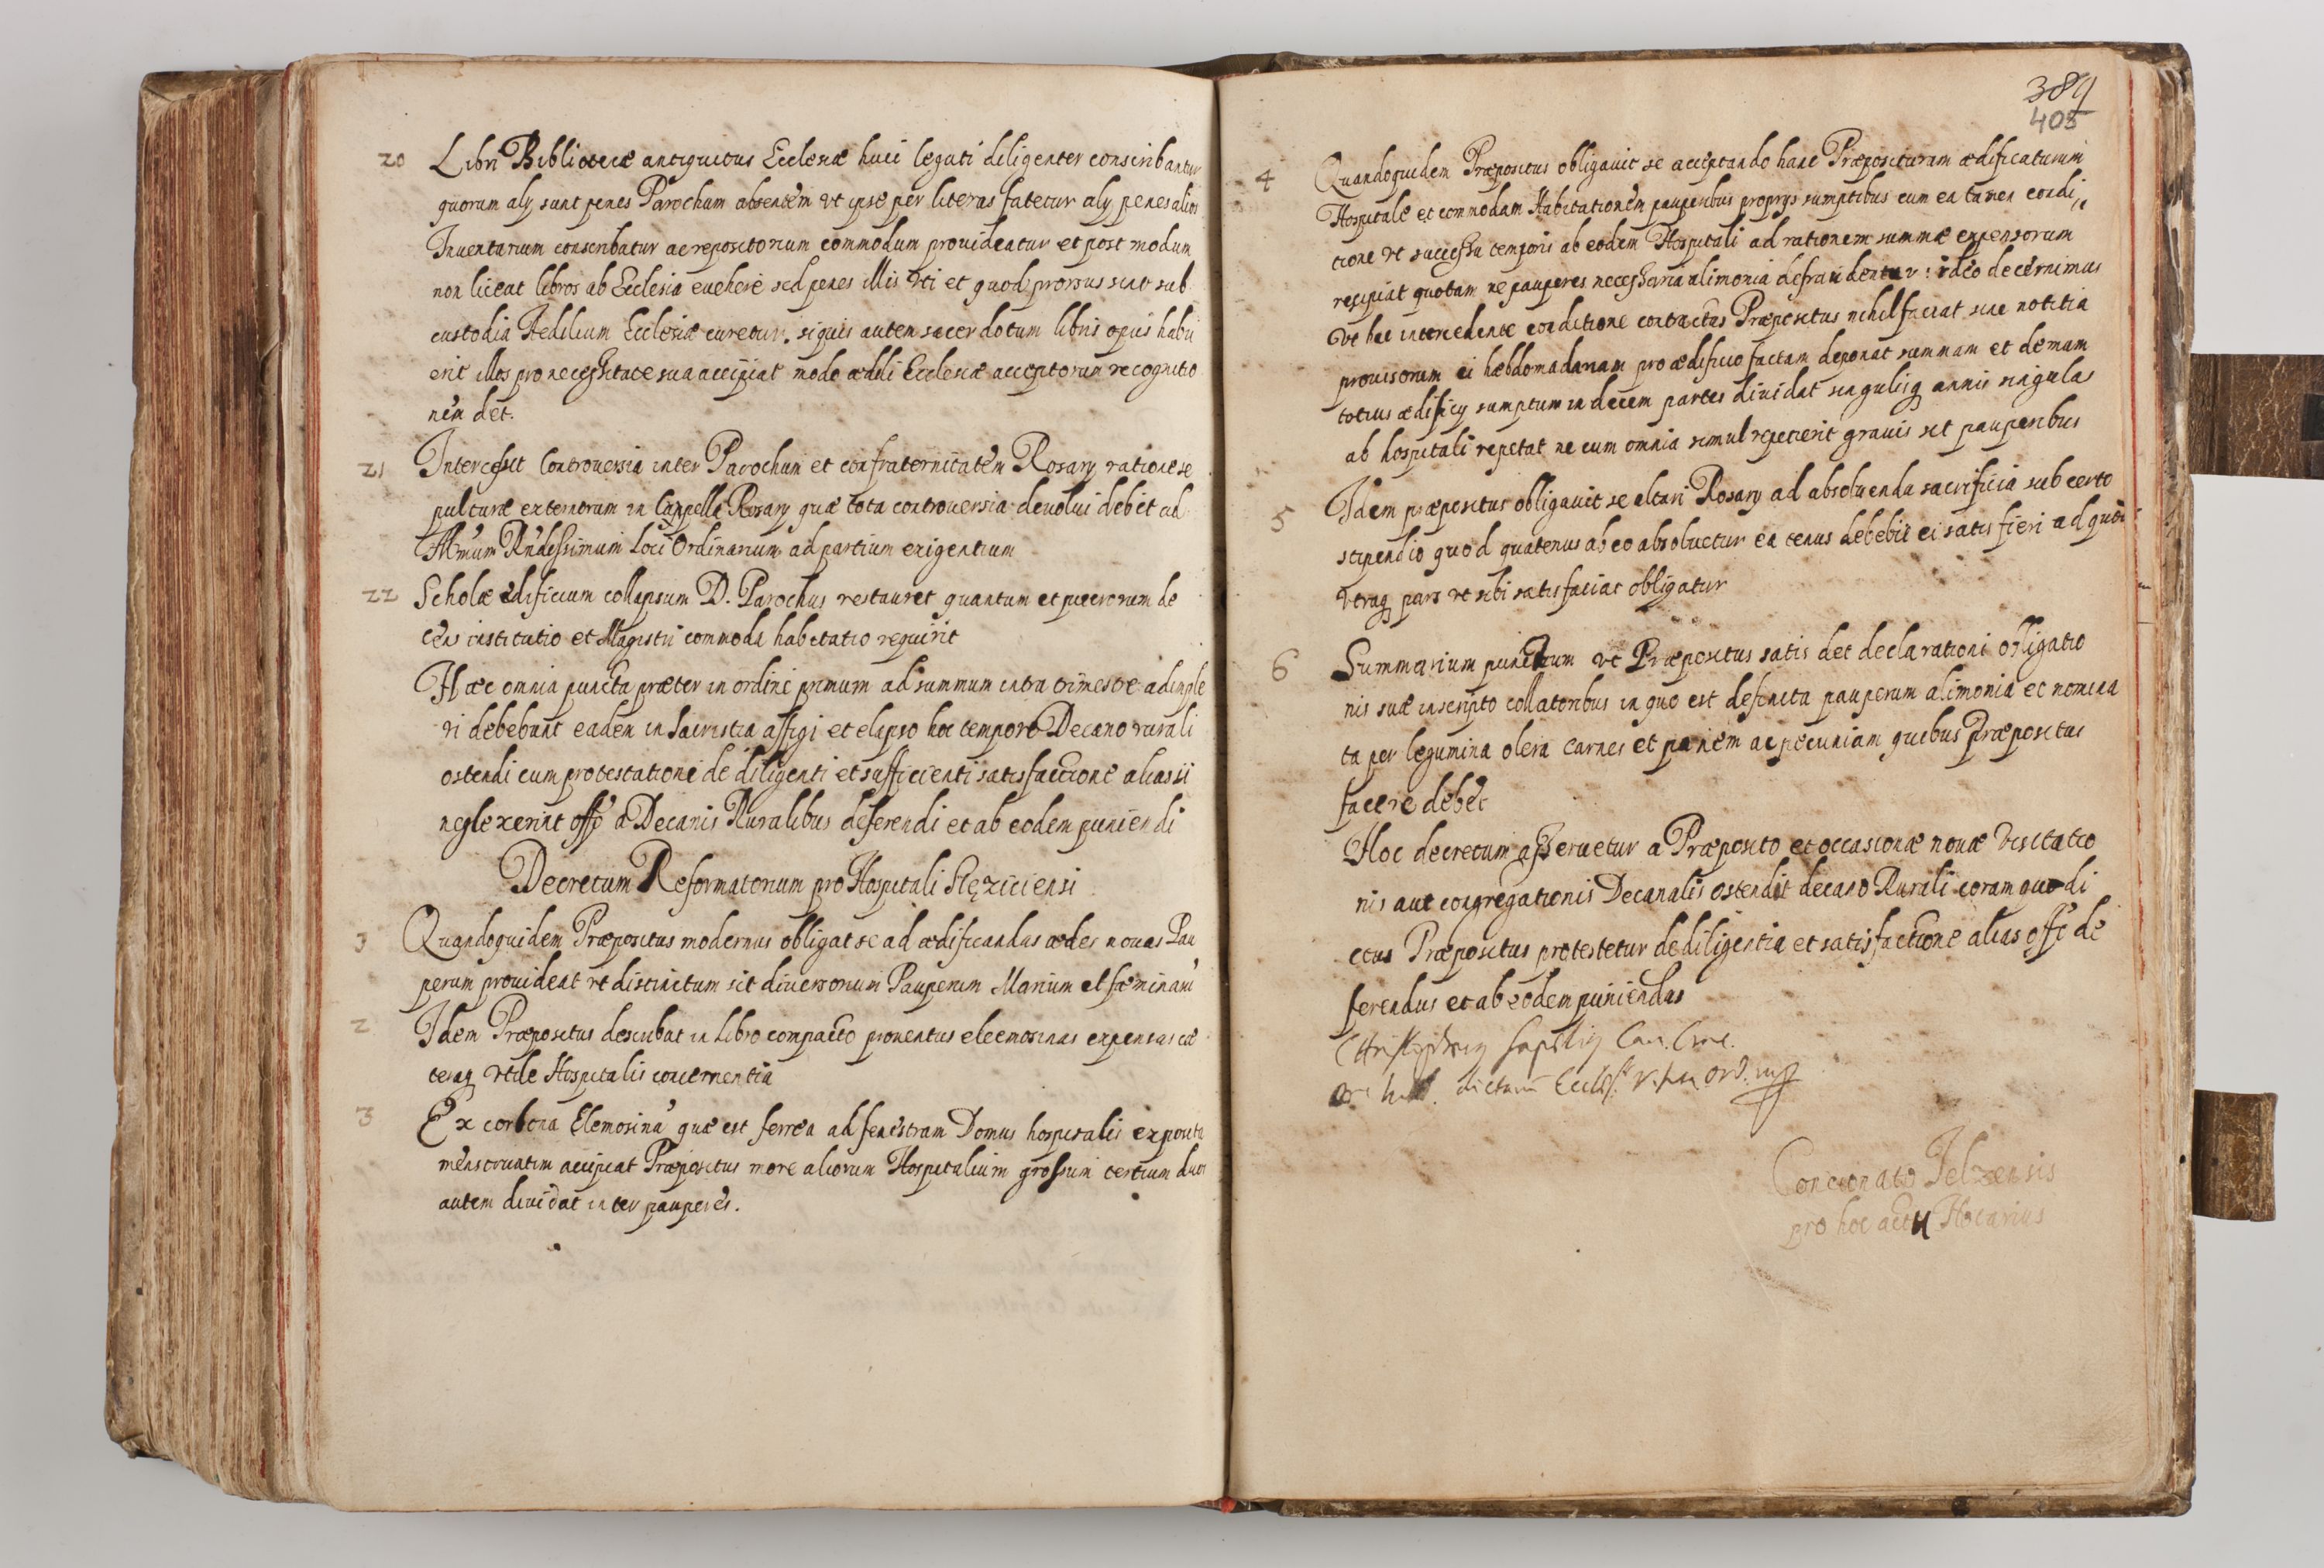 20 Libri Bibliotecæ antiquitus Ecclesiæ huic legati diligenter conscribantur
quorum alij sunt penes Parochum absentem vt ipse per literas fatetur alij penes alios
Inuentarium conscribatur ac repositorium commodum prouideatur et post modum
non liceat libros ab Ecclesia euehere sed penes illis vti et quod prorsus sint sub
custodia Aedilium Ecclesiæ curetur. siquis autem sacerdotum libris opus habu
erit illos pro necessitate sua accipiat modo ædili Ecclesiæ acceptorum recognitio
nem det.
21 Intercessit Controuersia inter Parochum et confraternitatem Rosarij ratione se
pulturæ externorum in Cappella Rosarij quæ tota controuersia deuolui debet ad
Illmum Rndissimum Loci Ordinarium ad partium exigentium
22 Scholæ ædificium collapsum D. Parochus restauret quantum et puerorum de
cens institutio et Magistri commoda habitatio requirit
Hæc omnia puncta præter in ordine primum ad summum intra trimestre adimple
ri debebunt eadem in Sacristia affigi et elapso hoc tempore Decano rurali
ostendi cum protestatione de diligenti et sufficienti satisfactione alias si
neglexerint offo a Decanis Ruralibus deferendi et ab eodem puniendi
Decretum Reformatorium pro Hospitali
1 Quandoquidem Præpositus modernus obligat se ad ædificandas ædes nouas Pau
perum prouideat vt distinctum sit diuersorium Pauperum Marium et fæminarū
2 Idem Præpositus describat in libro compacto prouentus eleemosinas expensas cæ
teraq vtile Hospitalis concernentia
3 Ex corbona Elemosina quæ est ferrea ad fenestram Domus hospitalis exposita
menstruatim accipiat Præpositus more aliorum Hospitalium grossum tertium duos
autem diuidat inter pauperes.
389
405
4 Quandoquidem Præpositus obligauit se acceptando hanc Præposituram ædificaturum
Hospitale et commodam Habitationem pauperibus proprijs sumptibus cum ea tamen condi
tione vt successu temporis ab eodem Hospitali ad rationem summæ expensorum
recipiat quotam ne pauperes necessaria alimonia defraudentur: ideo decernimus
vt hac intercedente conditione contractus Præpositus nihil faciat sine notitia
prouisorum ei hæbdomadariam pro ædificio factam deponat summam et demam
totius ædificij sumptum in decem partes diuidat singulisq annis singulas
ab hospitali repetat ne cum omnia simul repetierit grauis sit pauperibus
5 Idem præpositus obligauit se altari Rosarij ad absoluenda sacrificia sub certo
stipendio quod quatenus ab eo absoluetur ea tenus debebit ei satis fieri ad quod
vtraq pars vt sibi satisfaciat obligatur
6 Summarium punctum vt Præpositus satis det declarationi obligatio
nis suæ inscripto collatoribus in quo est definita pauperum alimonia et nomina
ta per legumina olera carnes et panem ac pecuniam quibus Præpositus
facere debet
Hoc decretum asseruetur a Præposito et occasionæ nouæ visitatio
nis aut congregationis Decanalis ostendit decano Rurali coram quo di
ctus Præpositus protestetur de diligentia et satisfactione alias offo de
ferendus et ab eodem puniendus
Can. Crac.
Concionato Ielzensis
pro hoc actu Notarius